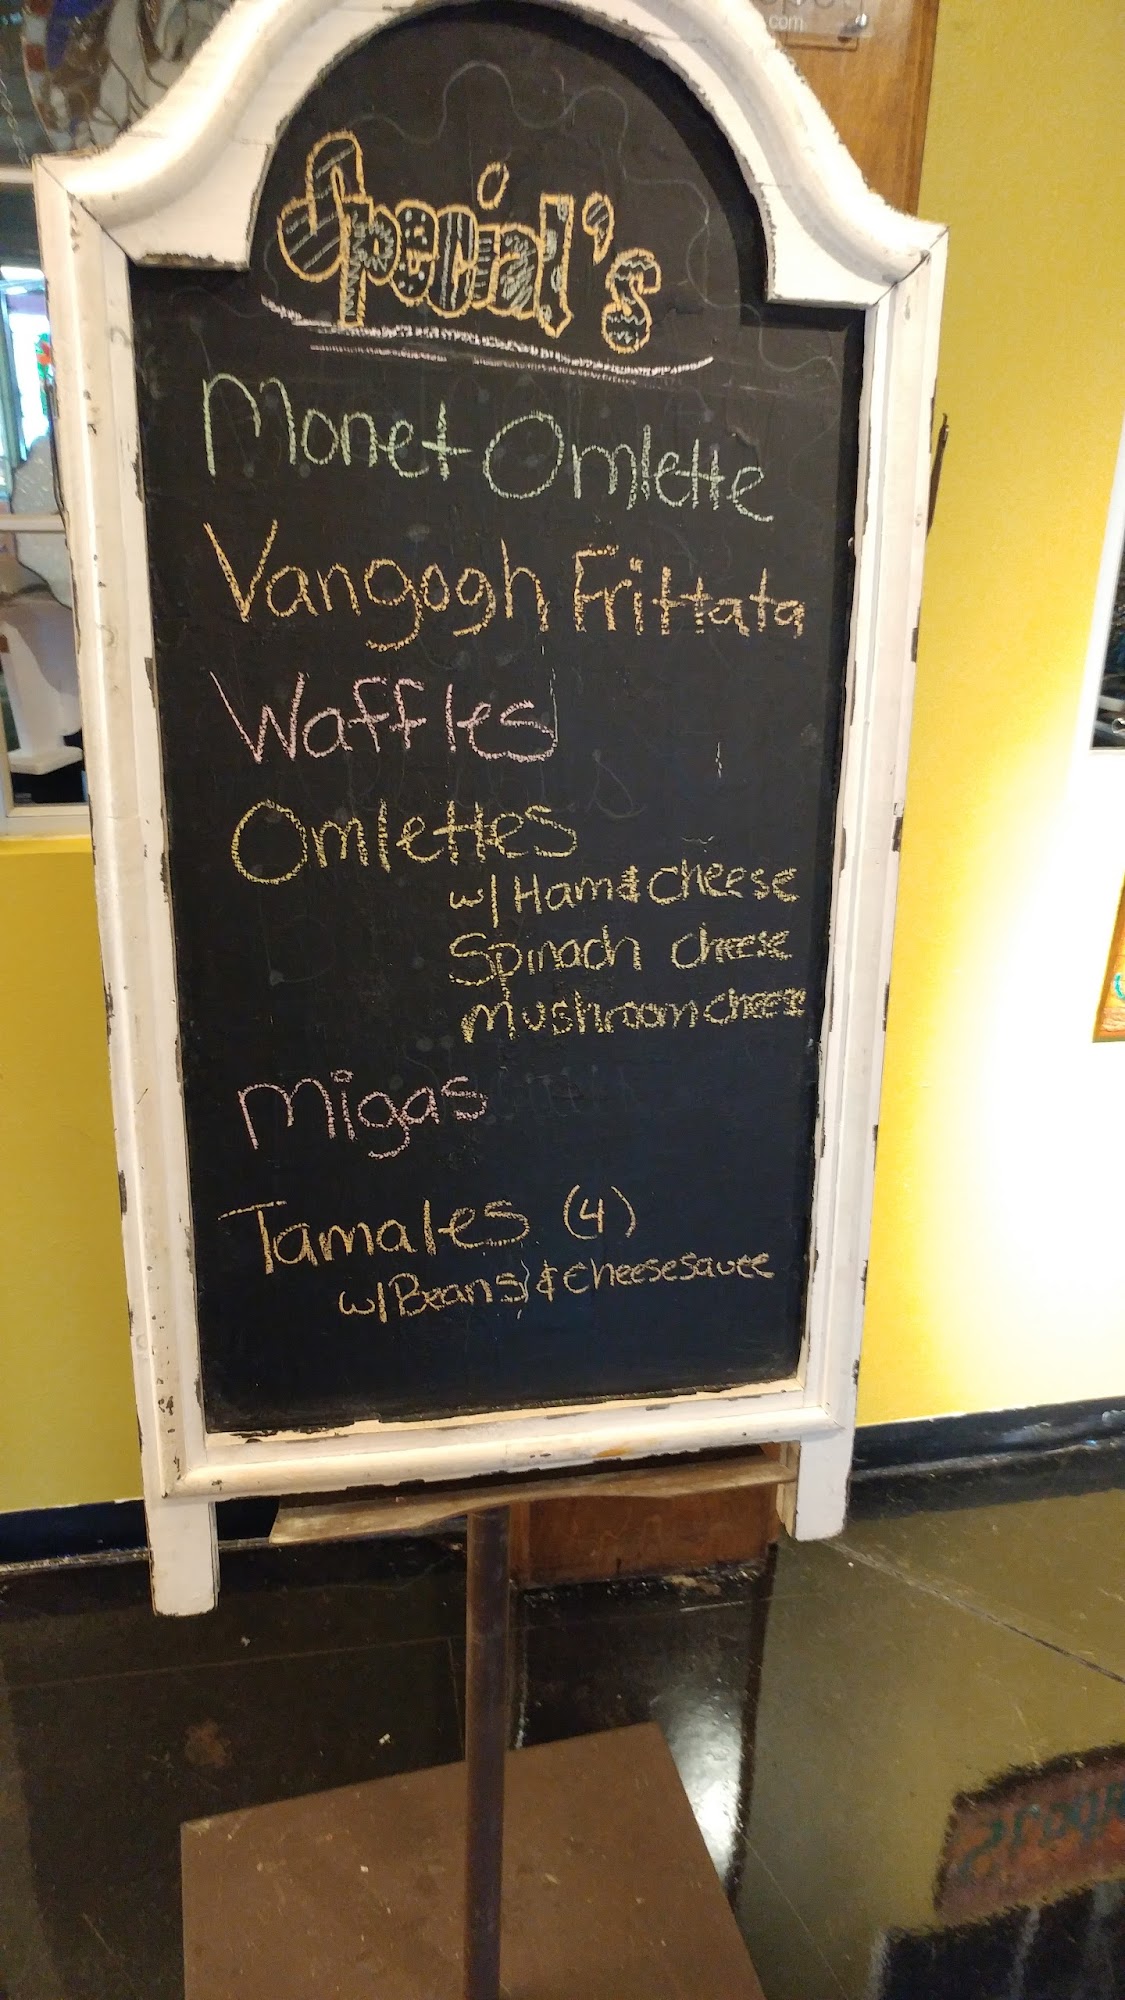 .com
Special's
Monet Omlette
Vangogh Frittata
Waffles
Omlettes
w/ Ham & cheese
Spinach cheese
mushroom cheese
Migas
Tamales (4)
w/ Beans & cheese sauce